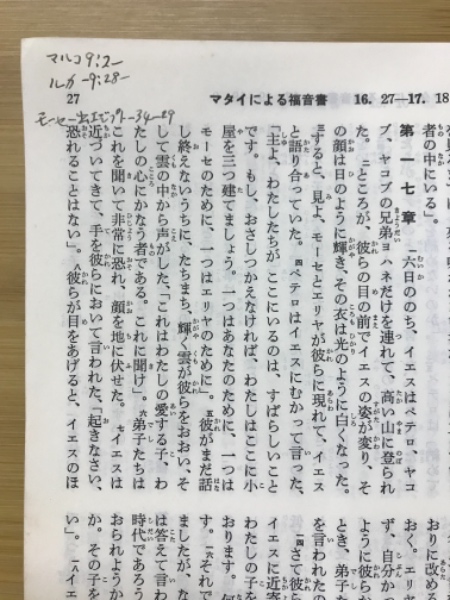 マルコ9:2-
ルカ-9:28-
モーセー出エジプト-34-29
27
マタイによる福音書
16. 27―17. 18
者の中にいる」。
第一七章 一六日ののち、イエスはペテロ、ヤコ
ブ、ヤコブの兄弟ヨハネだけを連れて、高い山に登られ
た。二ところが、彼らの目の前でイエスの姿が変り、そ
の顔は日のように輝き、その衣は光のように白くなった。
三すると、見よ、モーセとエリヤが彼らに現れて、イエス
と語り合っていた。四ペテロはイエスにむかって言った、
「主よ、わたしたちが、ここにいるのは、すばらしいこと
です。もし、おさしつかえなければ、わたしはここに小
屋を三つ建てましょう。一つはあなたのために、一つは
モーセのために、一つはエリヤのために」。五彼がまだ話
し終えないうちに、たちまち、輝く雲が彼らをおおい、そ
して雲の中から声がした、「これはわたしの愛する子、わ
たしの心にかなう者である。これに聞け」。六弟子たちは
これを聞いて非常に恐れ、顔を地に伏せた。七イエスは
近づいてきて、手を彼らにおいて言われた、「起きなさい、
恐れることはない」。八彼らが目をあげると、イエスのほ
おりに改める
おく。エリヤ
ず、自分かっ
ように彼らか
とき、弟子た
を言われたの
一四さて彼ら
イエスに近寄
わたしの子を
おります。何
す。一六それで
ましたが、な
は答えて言わ
時代であろう
おられようか
か。その子を
い」。一八イエ